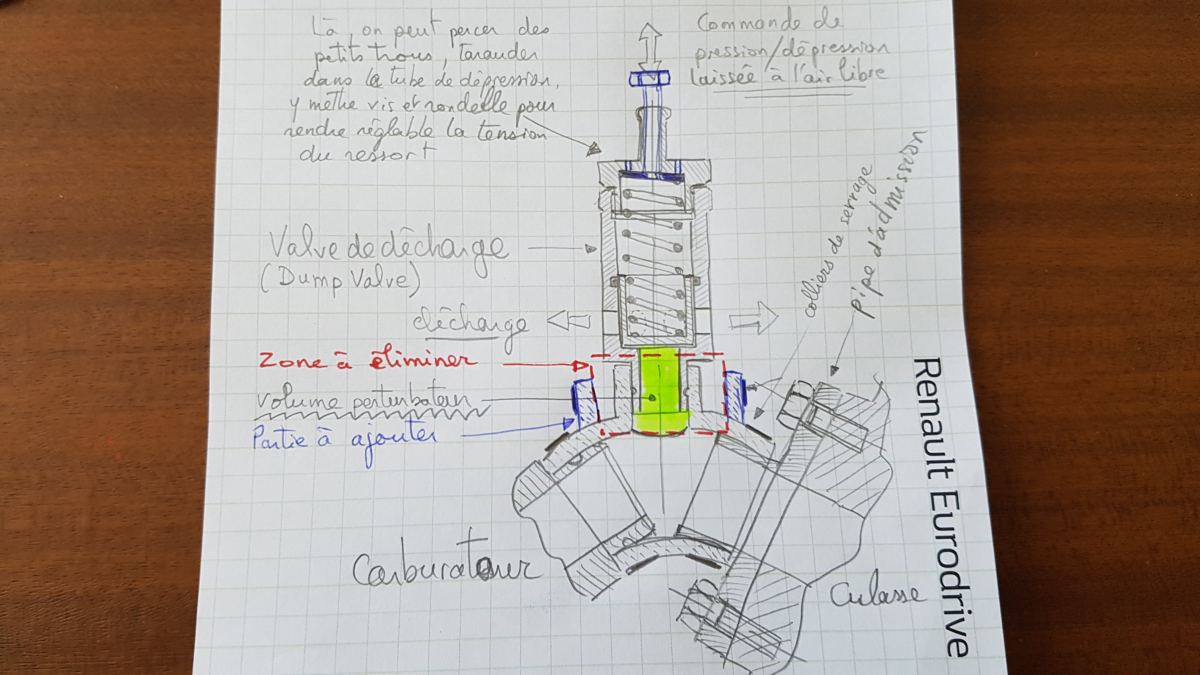 Là, on peut percer des
petits trous, tarauder
dans la tube de dépression,
y mettre vis et rondelle pour
rendre réglable la tension
du ressort
Commande de
pression/dépression
laissée à l'air libre
colliers de serrage
pipe d'admission
Valve de décharge
(Dump Valve)
décharge
Zone à éliminer
Volume perturbateur
Partie à ajouter
Carburateur
Culasse
Renault Eurodrive